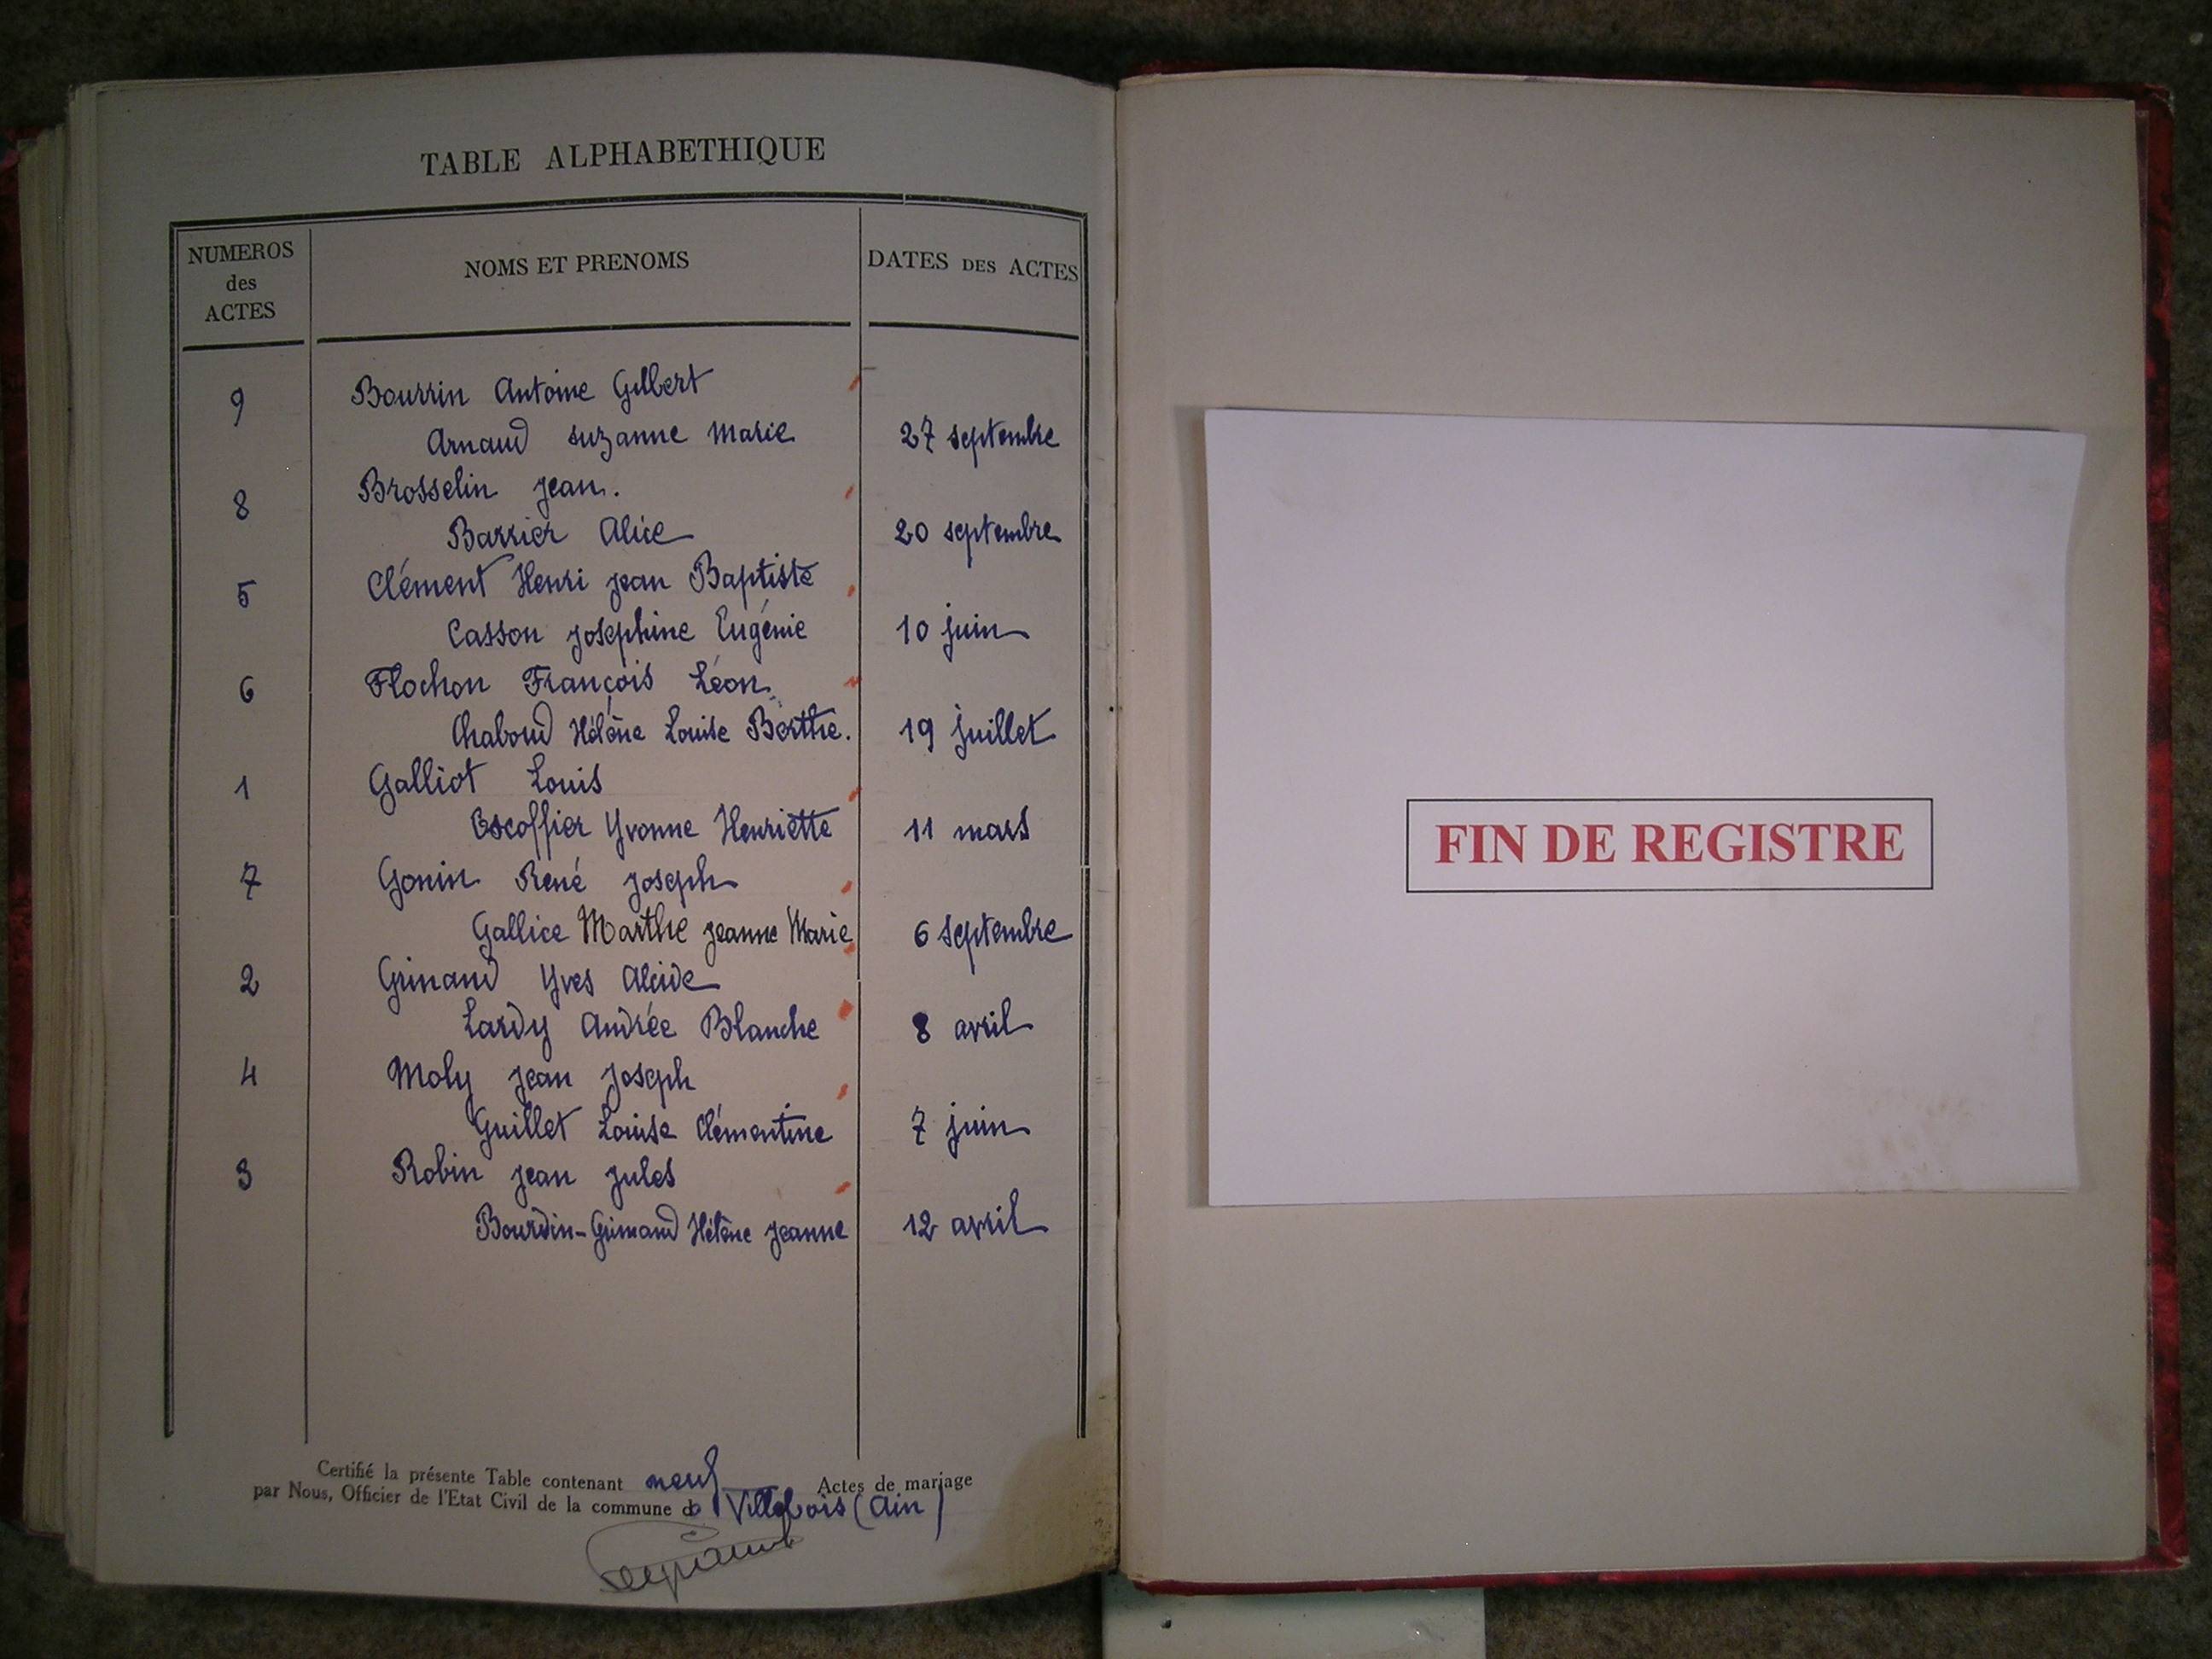 TABLE ALPHABETHIQUE
NUMEROS
des
ACTES
NOMS ET PRENOMS
DATES DES ACTES
9 Bourrin Antoine Gilbert
Arnaud Suzanne Marie 27 septembre
8 Brosselin Jean.
Barrier Alice 20 septembre
5 Clément Henri Jean Baptiste
Casson Joséphine Eugénie 10 juin
6 Flochon François Léon
Chaboud Hélène Louise Berthe. 19 juillet
1 Galliot Louis
Escoffier Yvonne Henriette 11 mars
7 Gonin René Joseph
Gallice Marthe Jeanne Marie 6 septembre
2 Grinand Yves Alcide
Lardy Andrée Blanche 8 avril
4 Moly Jean Joseph
Guillet Louise Clémentine 7 juin
3 Robin Jean Jules
Bourdin-Grimaud Hélène Jeanne 12 avril
Certifié la présente Table contenant neuf Actes de mariage
par Nous, Officier de l'Etat Civil de la commune de Villebois (Ain)
FIN DE REGISTRE